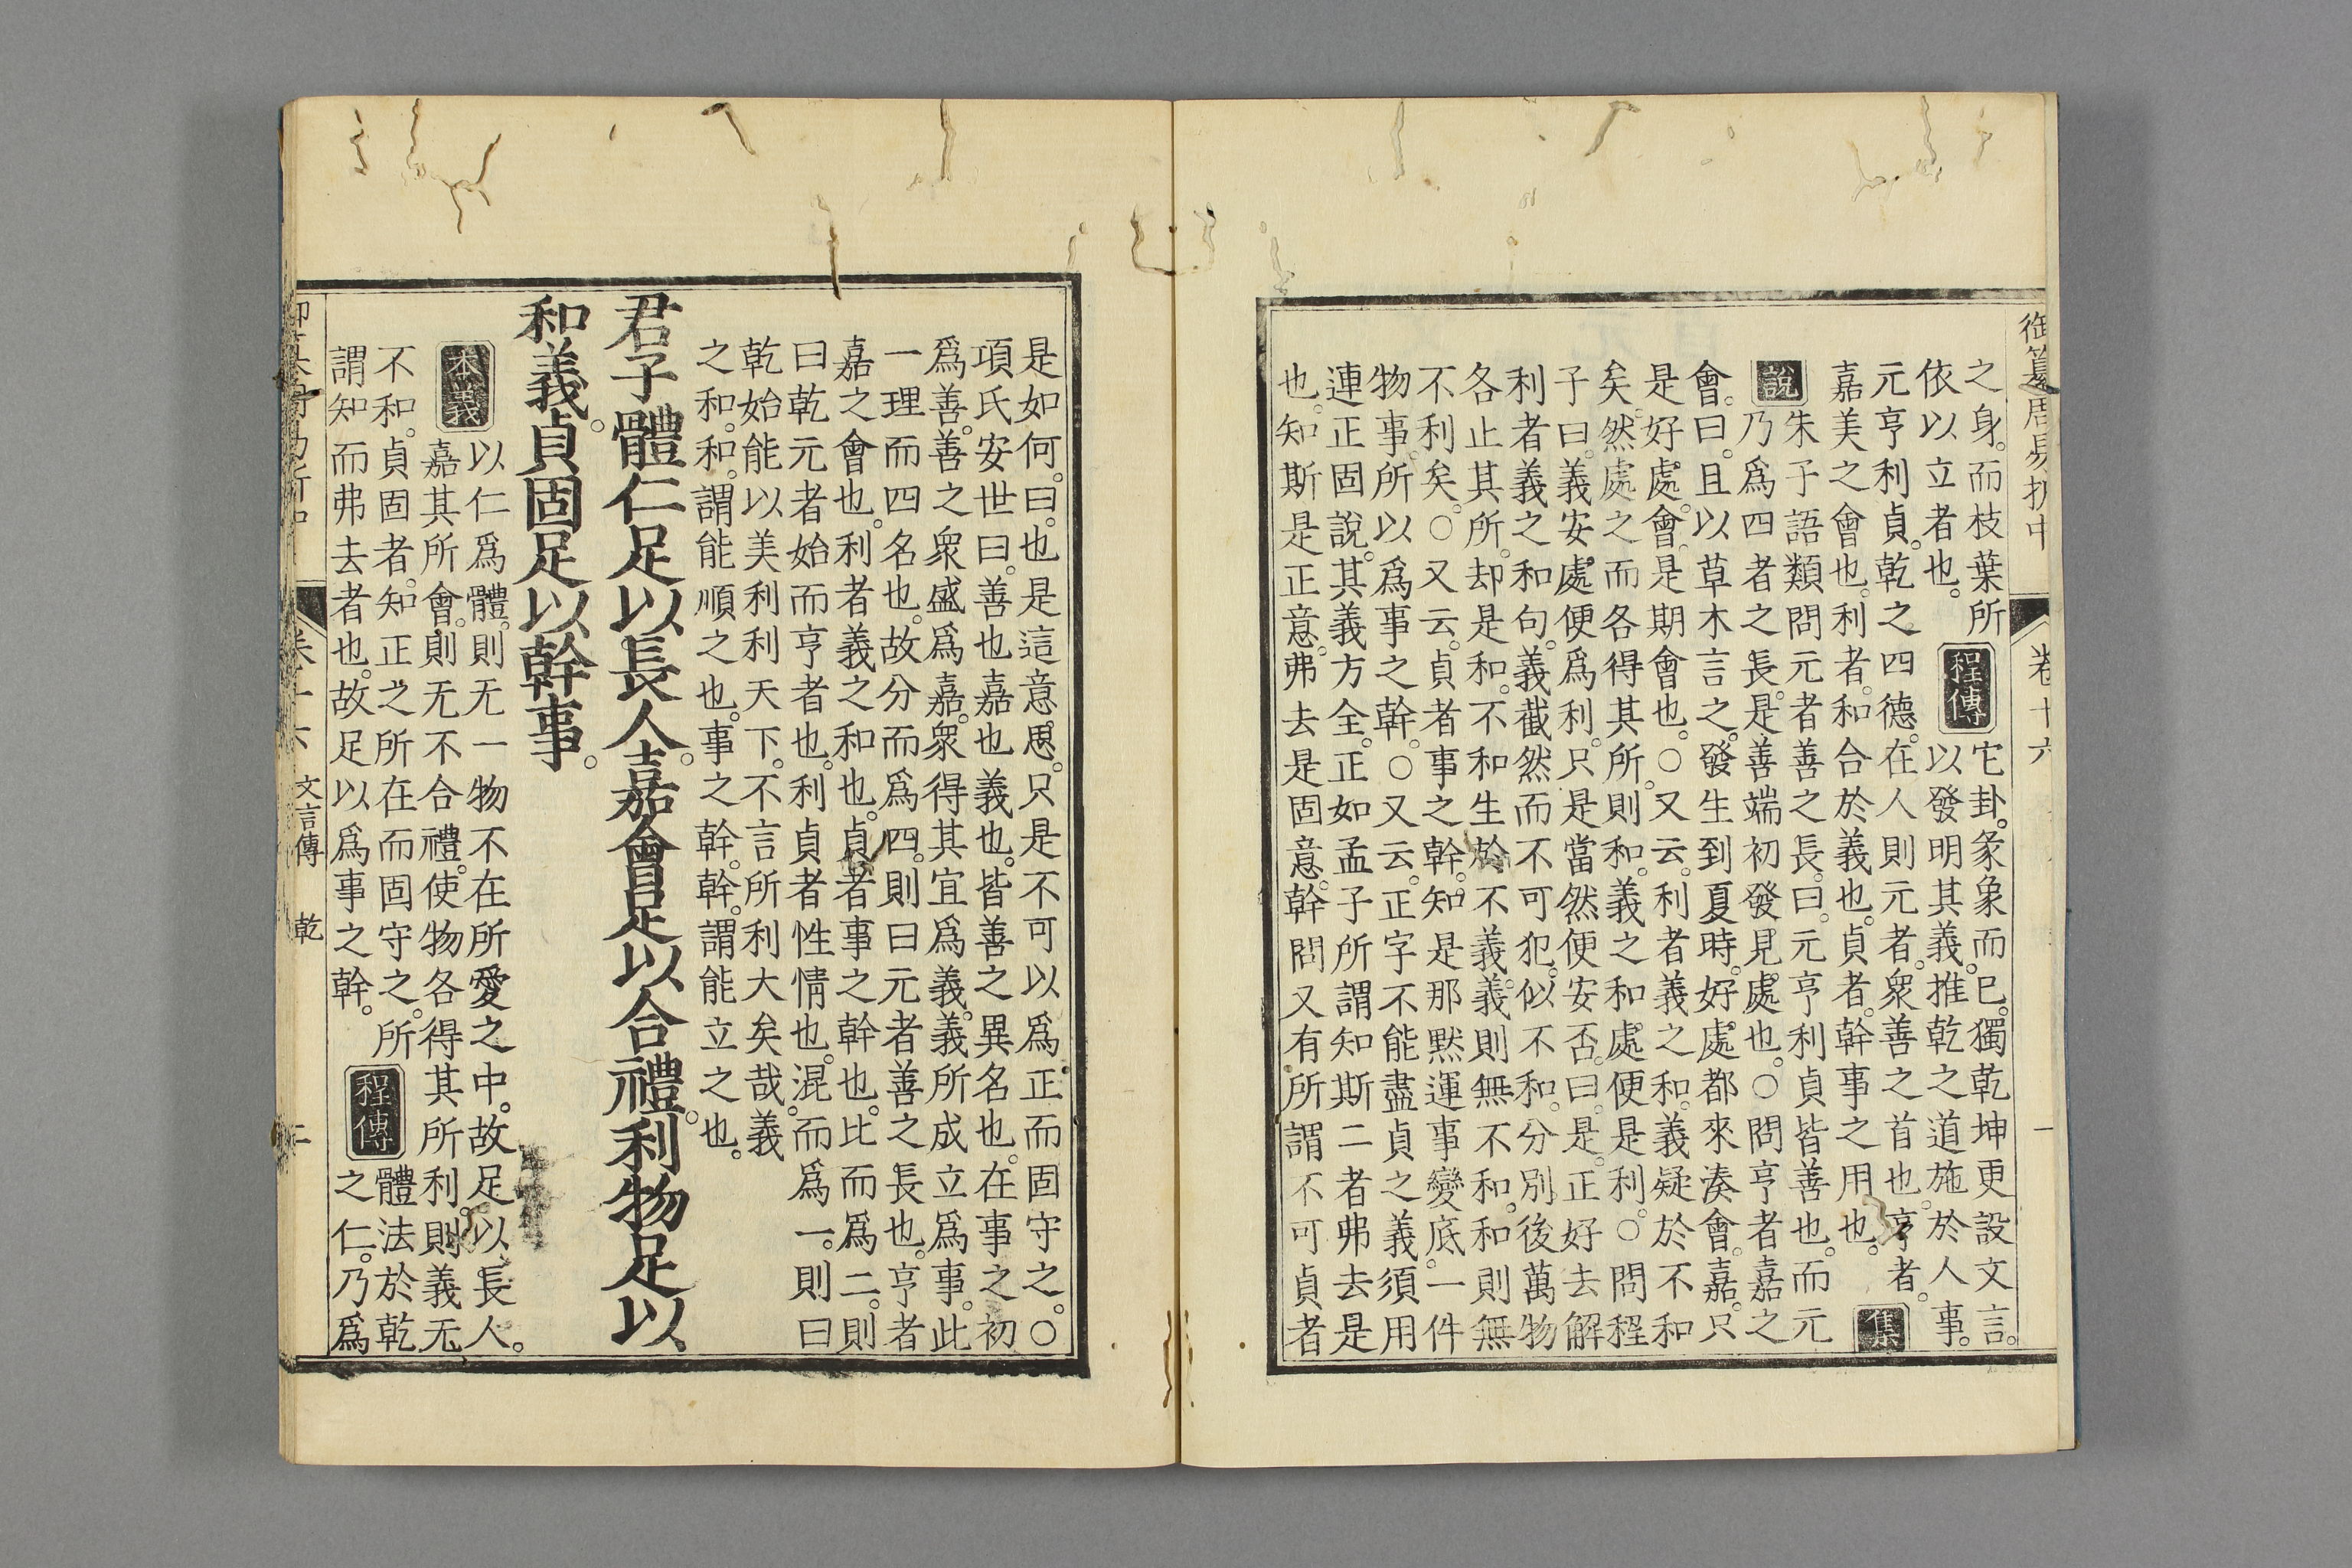 御纂周易折中 卷十六 一
之身。而枝葉所
依以立者也。
程傳
它卦。彖象而已。獨乾坤更設文言。
以發明其義。推乾之道。施於人事。
元亨利貞。乾之四德。在人則元者。衆善之首也。亨者。
嘉美之會也。利者。和合於義也。貞者。幹事之用也。
集
說
朱子語類問元者善之長。曰。元亨利貞皆善也。而元
乃爲四者之長。是善端初發見處也。○問亨者嘉之
會。曰。且以草木言之。發生到夏時。好處都來湊會。嘉。只
是好處。會。是期會也。○又云。利者義之和。義疑於不和
矣。然處之而各得其所。則和。義之和處便是利。○問程
子曰。義安處便爲利。只是當然便安否。曰。是。正好去解
利者義之和句。義截然而不可犯。似不和。分別後萬物
各止其所。却是和。不和生於不義。義則無不和。和則無
不利矣。○又云。貞者事之幹。知是那默運事變底。一件
物事。所以爲事之幹。○又云。正字不能盡貞之義。須用
連正固說。其義方全。正如孟子所謂知斯二者弗去是
也。知斯是正意。弗去是固意。幹問又有所謂不可貞者
是如何。曰。也是這意思。只是不可以爲正而固守之。○
項氏安世曰。善也嘉也義也。皆善之異名也。在事之初
爲善。善之衆盛爲嘉。衆得其宜爲義。義所成立爲事。此
一理而四名也。故分而爲四。則曰元者善之長也。亨者
嘉之會也。利者義之和也。貞者事之幹也。比而爲二。則
曰乾元者始而亨者也。利貞者性情也。混而爲一。則曰
乾始能以美利利天下。不言所利大矣哉。義
之和。和。謂能順之也。事之幹。幹。謂能立之也。
君子體仁足以長人。嘉會足以合禮。利物足以
和義。貞固足以幹事。
本義
以仁爲體。則无一物不在所愛之中。故足以長人。
嘉其所會。則无不合禮。使物各得其所利。則義无
不和。貞固者。知正之所在而固守之。所
謂知而弗去者也。故足以爲事之幹。
程傳
體法於乾
之仁。乃爲
卷十六 文言傳 乾 二